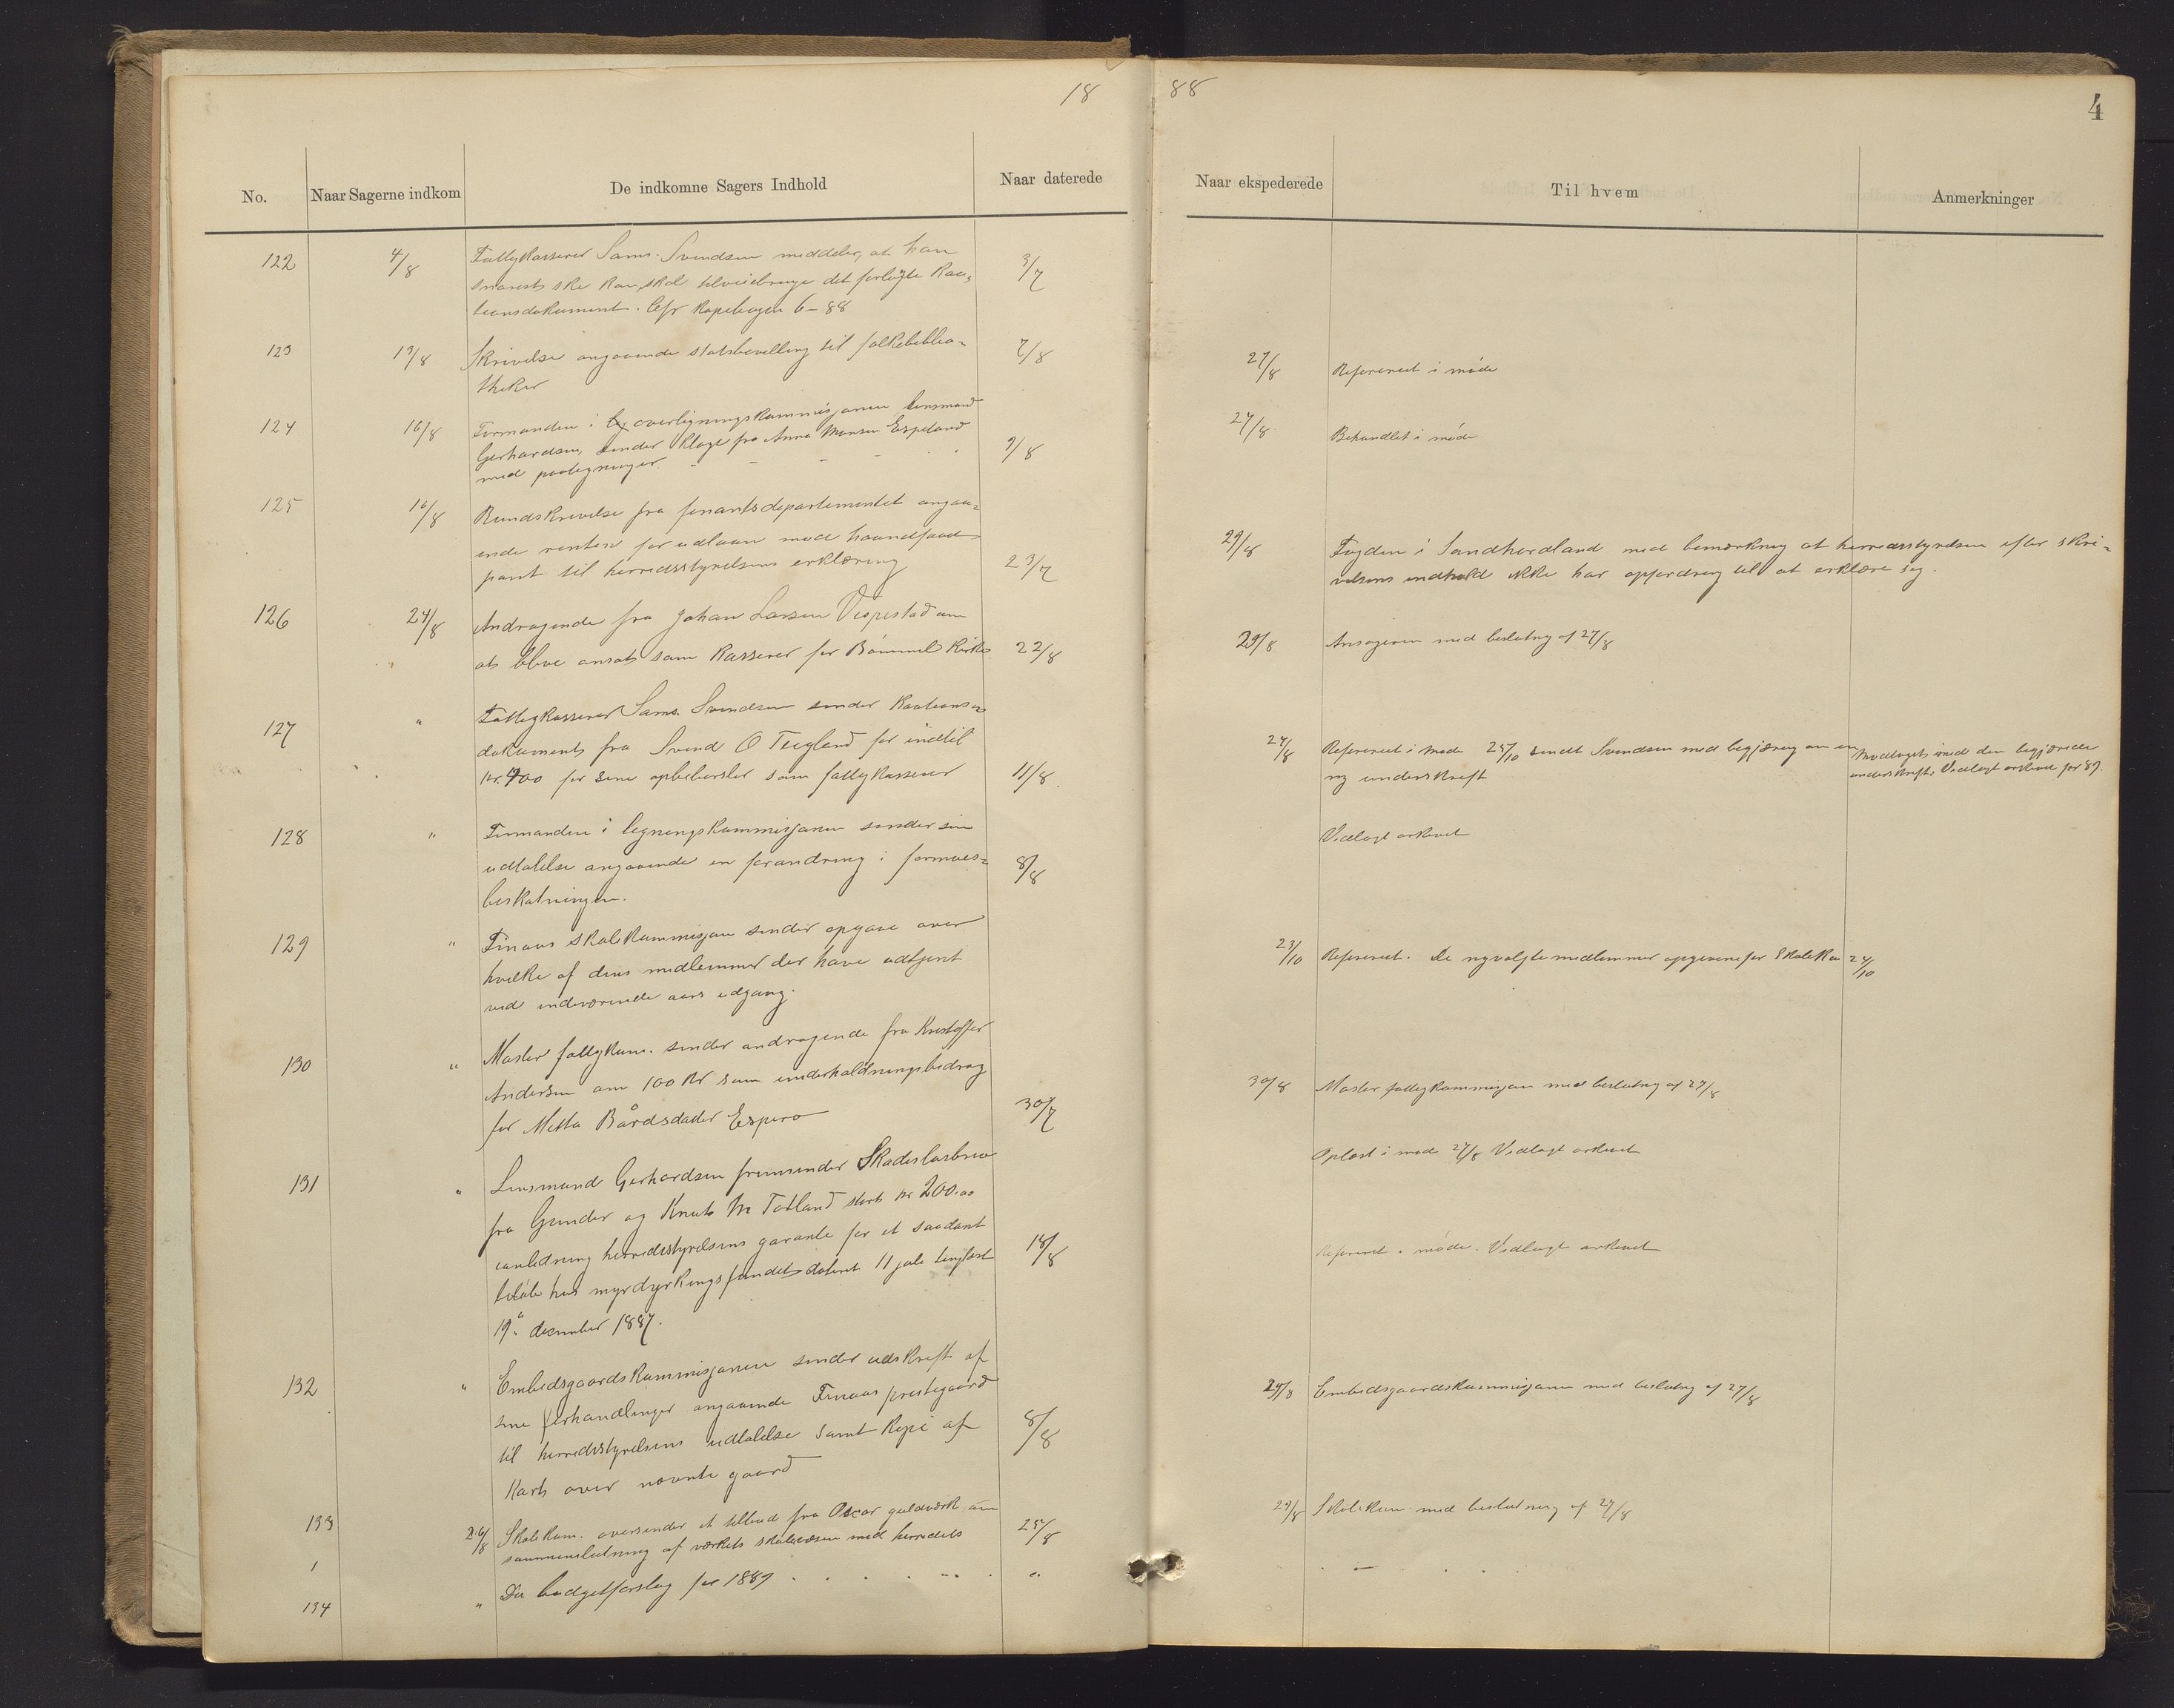 18 88
4
No. Naar Sagerne indkom De indkomne Sagers Indhold Naar daterede Naar ekspederede Til hvem Anmerkninger
122 4/8 Fattigkasserer Sams. Svendsen meddeler, at han 3/7
snarest ske kan, skal tilveiebringe det forlangte Kau-
tionsdokument. Cfr Kopibogen 6-88
123 13/8 Skrivelse angaaende statsbevilling til folkebiblio- 7/8 27/8 Refereret i møde
theker
124 16/8 Formanden i overligningskommisjonen lensmand 27/8 Behandlet i møde
Gerhardsen, sender klage fra Anna Monsen Espeland
med paategninger. 9/8
125 16/8 Rundskrivelse fra finantsdepartementet angaa-
ende renten for udlaan mod haandfaaet 29/8 Fogden i Søndhordland med bemærkning at herredsstyrelsen efter skri-
pant til herredsstyrelsens erklæring 23/7 velsens indhold ikke har opfordring til at erklære sig.
126 24/8 Andragende fra Johan Larsen Vespestad om
at blive ansat som Kasserer for Bømmel Kirke 22/8 29/8 Ansøgeren med beslutning af 27/8
127 " Fattigkasserer Sams. Svendsen sender Kautions-
dokument fra Svend O Teigland for indtil 27/8 Refereret i møde 25/10 sendt Svendsen med begjæring om en Modtaget med den begjærede
kr. 400 for sine opbebørsler som fattigkasserer 11/8. ny underskrift underskrift. Vedlagt arkivet for 89.
128 " Formanden i ligningskommisjonen sender sin Vedlagt arkivet
udtalelse angaaende en forandring i formues-
beskatningen. 8/8
129 " Finaas skolekommisjon sender opgave over 23/10 Refereret. De nyvalgte medlemmer opgivne for Skolekom 24/10
hvilke af dens medlemmer der have udtjent
ved indeværende aars udgang.
130 " Moster fattigkom. sender andragende fra Kristoffer
Andersen om 100 Kr som underholdningsbidrag 30/8 Moster fattigkommisjon med beslutning af 27/8
for Metta Bårdsdatter Espevo 30/7
131 " Lensmand Gerhardsen fremsender Skadesløsbrev Oplæst i møde 27/8 Vedlagt arkivet
fra Gunder og Knut M Totland stort kr 200.00
ianledning herredsstyrelsens garanti for et saadant
beløb hos myrdyrkningsfondet dateret 11 juli tinglæst 18/8 Refereret i møde. Vedlagt arkivet
19de december 1887.
132 " Embedsgaardskommisjonen sender udskrift af 29/8 Embedsgaardskommisjonen med beslutning af 27/8
sine forhandlinger angaaende Finaas prestegaard
til herredsstyrelsens udtalelse samt kopi af 8/8
Kart over nævnte gaard
133 26/8 Skolekom. oversender et tilbud fra Oscar guldværk om 25/8 29/8 Skolekom. med beslutning af 27/8
sammenslutning af værkets skolevæsen med herredets
134 " Do budgetforslag for 1889 "